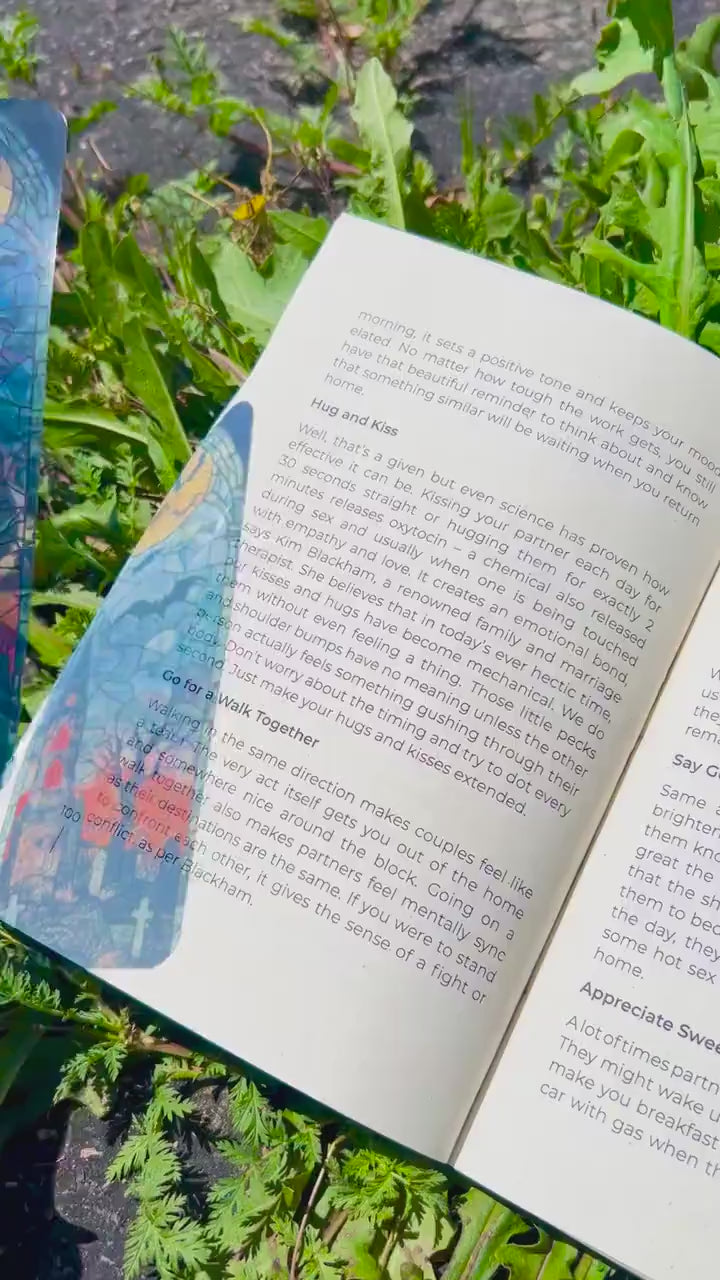 morning, it sets a positive tone and keeps your mood
elated. No matter how tough the work gets, you still
have that beautiful reminder to think about and know
that something similar will be waiting when you return
home.
Hug and Kiss
Well, that's a given but even science has proven how
effective it can be. Kissing your partner each day for
30 seconds straight or hugging them for exactly 2
minutes releases oxytocin – a chemical also released
during sex and usually when one is being touched
with empathy and love. It creates an emotional bond,
says Kim Blackham, a renowned family and marriage
therapist. She believes that in today's ever hectic time,
our kisses and hugs have become mechanical. We do
them without even feeling a thing. Those little pecks
and shoulder bumps have no meaning unless the other
person actually feels something gushing through their
body. Don't worry about the timing and try to dot every
second. Just make your hugs and kisses extended.
Go for a Walk Together
Walking in the same direction makes couples feel like
a team. The very act itself gets you out of the home
and somewhere nice around the block. Going on a
walk together also makes partners feel mentally sync
as their destinations are the same. If you were to stand
to confront each other, it gives the sense of a fight or
conflict, as per Blackham.
100
W
us
the
rema
Say G
Same
brighten
them kno
great the
that the sh
them to bec
the day, they
some hot sex
home.
Appreciate Swee
A lot of times partn
They might wake u
make you breakfast
car with gas when th